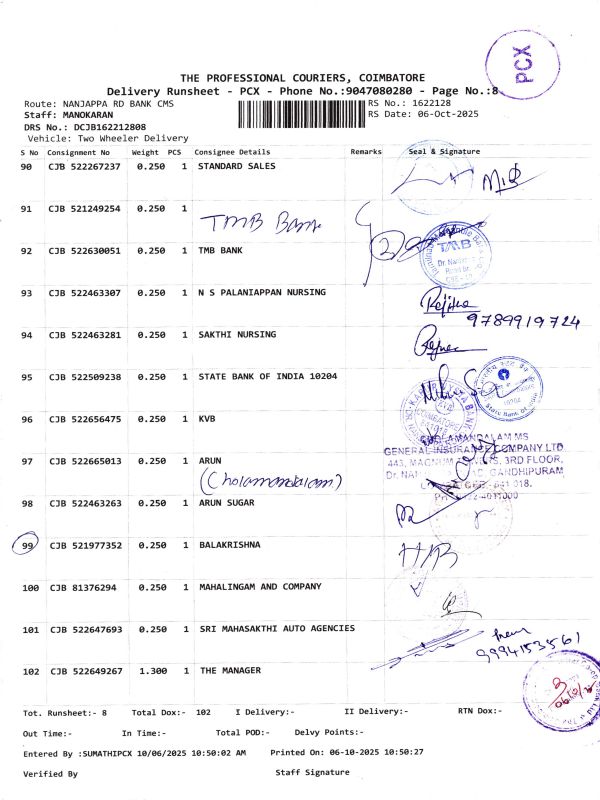 PCX
THE PROFESSIONAL COURIERS, COIMBATORE
Delivery Runsheet - PCX - Phone No.:9047080280 - Page No.:8
Route: NANJAPPA RD BANK CMS
RS No.: 1622128
Staff: MANOKARAN
RS Date: 06-Oct-2025
DRS No.: DCJB162212808
Vehicle: Two Wheeler Delivery
S No Consignment No Weight PCS Consignee Details Remarks Seal & Signature
90 CJB 522267237 0.250 1 STANDARD SALES
91 CJB 521249254 0.250 1
TMB Bank
92 CJB 522630051 0.250 1 TMB BANK
2
TMB
93 CJB 522463307 0.250 1 N S PALANIAPPAN NURSING
9789919724
94 CJB 522463281 0.250 1 SAKTHI NURSING
95 CJB 522509238 0.250 1 STATE BANK OF INDIA 10204
10204
State Bank of India
96 CJB 522656475 0.250 1 KVB
COIMBATORE
CHOLAMANDALAM MS
GENERAL INSURANCE COMPANY LTD
97 CJB 522665013 0.250 1 ARUN
3RD FLOOR,
(Cholamandalam)
GANDHIPURAM
98 CJB 522463263 0.250 1 ARUN SUGAR
99 CJB 521977352 0.250 1 BALAKRISHNA
100 CJB 81376294 0.250 1 MAHALINGAM AND COMPANY
101 CJB 522647693 0.250 1 SRI MAHASAKTHI AUTO AGENCIES
9994153561
102 CJB 522649267 1.300 1 THE MANAGER
Tot. Runsheet:- 8 Total Dox:- 102 I Delivery:- II Delivery:- RTN Dox:-
Out Time:- In Time:- Total POD:- Delvy Points:-
Entered By :SUMATHIPCX 10/06/2025 10:50:02 AM Printed On: 06-10-2025 10:50:27
Verified By Staff Signature